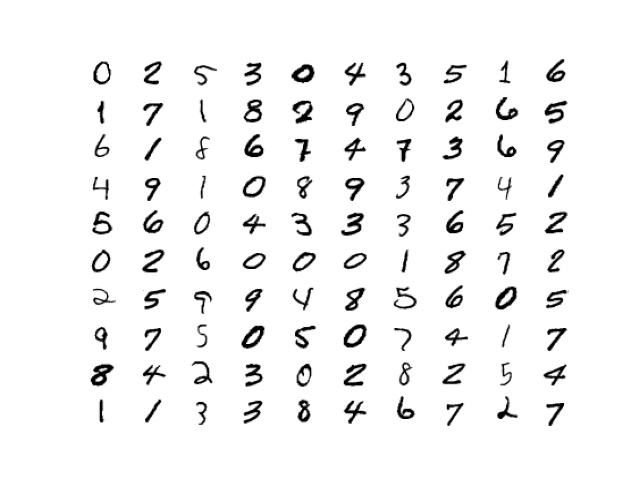 0 2 5 3 0 4 3 5 1 6
1 7 1 8 2 9 0 2 6 5
6 1 8 6 7 4 7 3 6 9
4 9 1 0 8 9 3 7 4 1
5 6 0 4 3 3 3 6 5 2
0 2 6 0 0 0 1 8 7 2
2 5 9 9 4 8 5 6 0 5
9 7 5 0 5 0 7 4 1 7
8 4 2 3 0 2 8 2 5 4
1 1 3 3 8 4 6 7 2 7